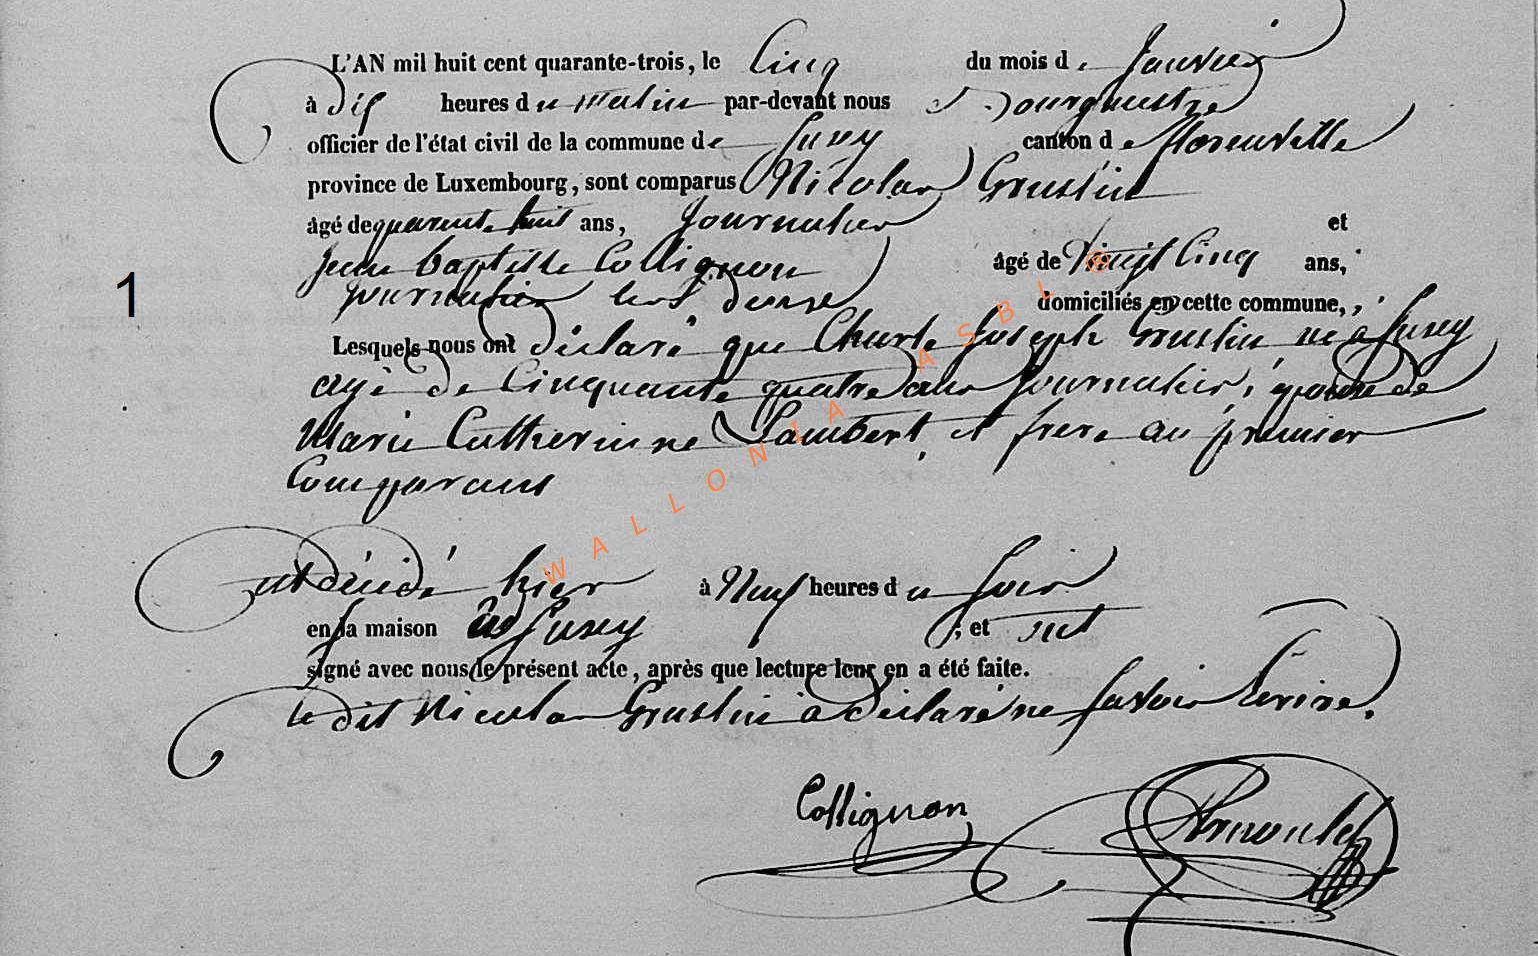 L'AN mil huit cent quarante-trois, le Cinq du mois de Janvier
à dix heures du matin par-devant nous Bourgmestre
officier de l'état civil de la commune de Suxy canton de florenville
province de Luxembourg, sont comparus Nicolas Grustin
âgé de quarente huit ans, Journalier et
Jean baptiste Collignon âgé de Vingt Cinq ans,
journalier tous deux domiciliés en cette commune,
Lesquels nous ont déclaré que Charle Joseph Grustin né à Suxy
agé de Cinquante quatre ans Journalier, époux de
Marie Catherinne Lambert, et frere au premier
Comparant
1
est décédé hier à Neuf heures du Soir
en sa maison à Suxy ; et ont
signé avec nous le présent acte, après que lecture leur en a été faite.
le dit Nicolas Grustin à déclaré ne savoir Ecrire.
Collignon Arnould
WALLONIA ASBL ®